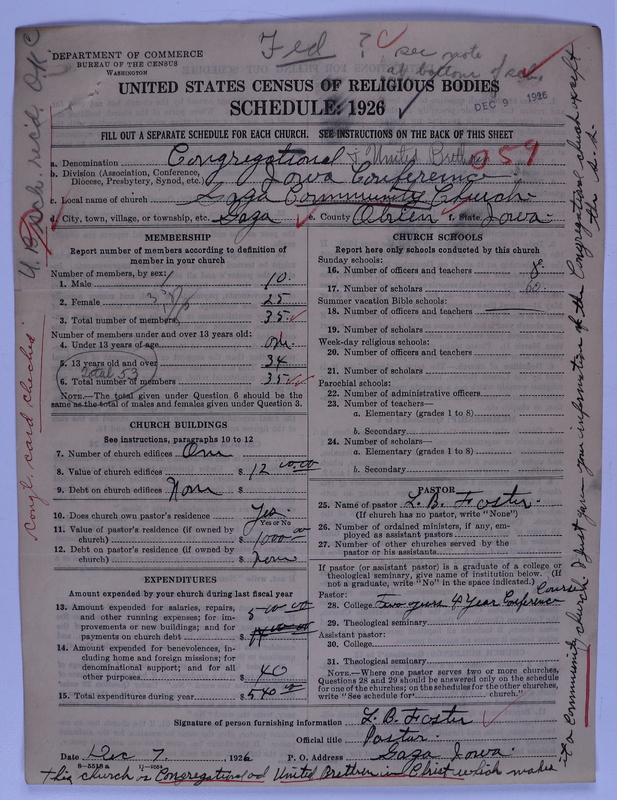 Fed ? see note
at bottom of sch.
DEPARTMENT OF COMMERCE
BUREAU OF THE CENSUS
WASHINGTON
UNITED STATES CENSUS OF RELIGIOUS BODIES
SCHEDULE: 1926
DEC 9 1926
FILL OUT A SEPARATE SCHEDULE FOR EACH CHURCH. SEE INSTRUCTIONS ON THE BACK OF THIS SHEET
a. Denomination Congregational & United Brethren 059
b. Division (Association, Conference, Diocese, Presbytery, Synod, etc.) Iowa Conference
c. Local name of church Gaza Community Church
d. City, town, village, or township, etc. Gaza e. County Obrien f. State Iowa
MEMBERSHIP
Report number of members according to definition of
member in your church
Number of members, by sex:
1. Male 10
2. Female 25
3. Total number of members 35
Number of members under and over 13 years old:
4. Under 13 years of age one
5. 13 years old and over 34
Total 53
6. Total number of members 35
NOTE.—The total given under Question 6 should be the
same as the total of males and females given under Question 3.
CHURCH BUILDINGS
See instructions, paragraphs 10 to 12
7. Number of church edifices One
8. Value of church edifices $ 12 00.00
9. Debt on church edifices $ None
10. Does church own pastor's residence Yes
Yes or No
11. Value of pastor's residence (if owned by
church) $ 1000 00
12. Debt on pastor's residence (if owned by
church) $ none
EXPENDITURES
Amount expended by your church during last fiscal year
13. Amount expended for salaries, repairs,
and other running expenses; for im-
provements or new buildings; and for
payments on church debt $ 500 00
14. Amount expended for benevolences, in-
cluding home and foreign missions; for
denominational support; and for all
other purposes $ 40
15. Total expenditures during year $ 540
CHURCH SCHOOLS
Report here only schools conducted by this church
Sunday schools:
16. Number of officers and teachers 8
17. Number of scholars 60
Summer vacation Bible schools:
18. Number of officers and teachers
19. Number of scholars
Week-day religious schools:
20. Number of officers and teachers
21. Number of scholars
Parochial schools:
22. Number of administrative officers
23. Number of teachers—
a. Elementary (grades 1 to 8)
b. Secondary
24. Number of scholars—
a. Elementary (grades 1 to 8)
b. Secondary
PASTOR
25. Name of pastor L. B. Foster
(If church has no pastor, write "None")
26. Number of ordained ministers, if any, em-
ployed as assistant pastors
27. Number of other churches served by the
pastor or his assistants
If pastor (or assistant pastor) is a graduate of a college or
theological seminary, give name of institution below. (If
not a graduate, write "No" in the space indicated.)
Pastor:
28. College Two years 4 Year Conference Course
29. Theological seminary
Assistant pastor:
30. College
31. Theological seminary
NOTE.—Where one pastor serves two or more churches,
Questions 28 and 29 should be answered only on the schedule
for one of the churches; on the schedules for the other churches,
write "See schedule for church."
Signature of person furnishing information L. B. Foster
Official title Pastor
Date Dec 7, 1926 P. O. Address Gaza Iowa
8—5518 a
This church is Congregational and United Brethren in Christ which makes
it a Community church I just gave you information of the Congregational church except
the S. S.
U.B. sch. rec'd.
Congl. card checked